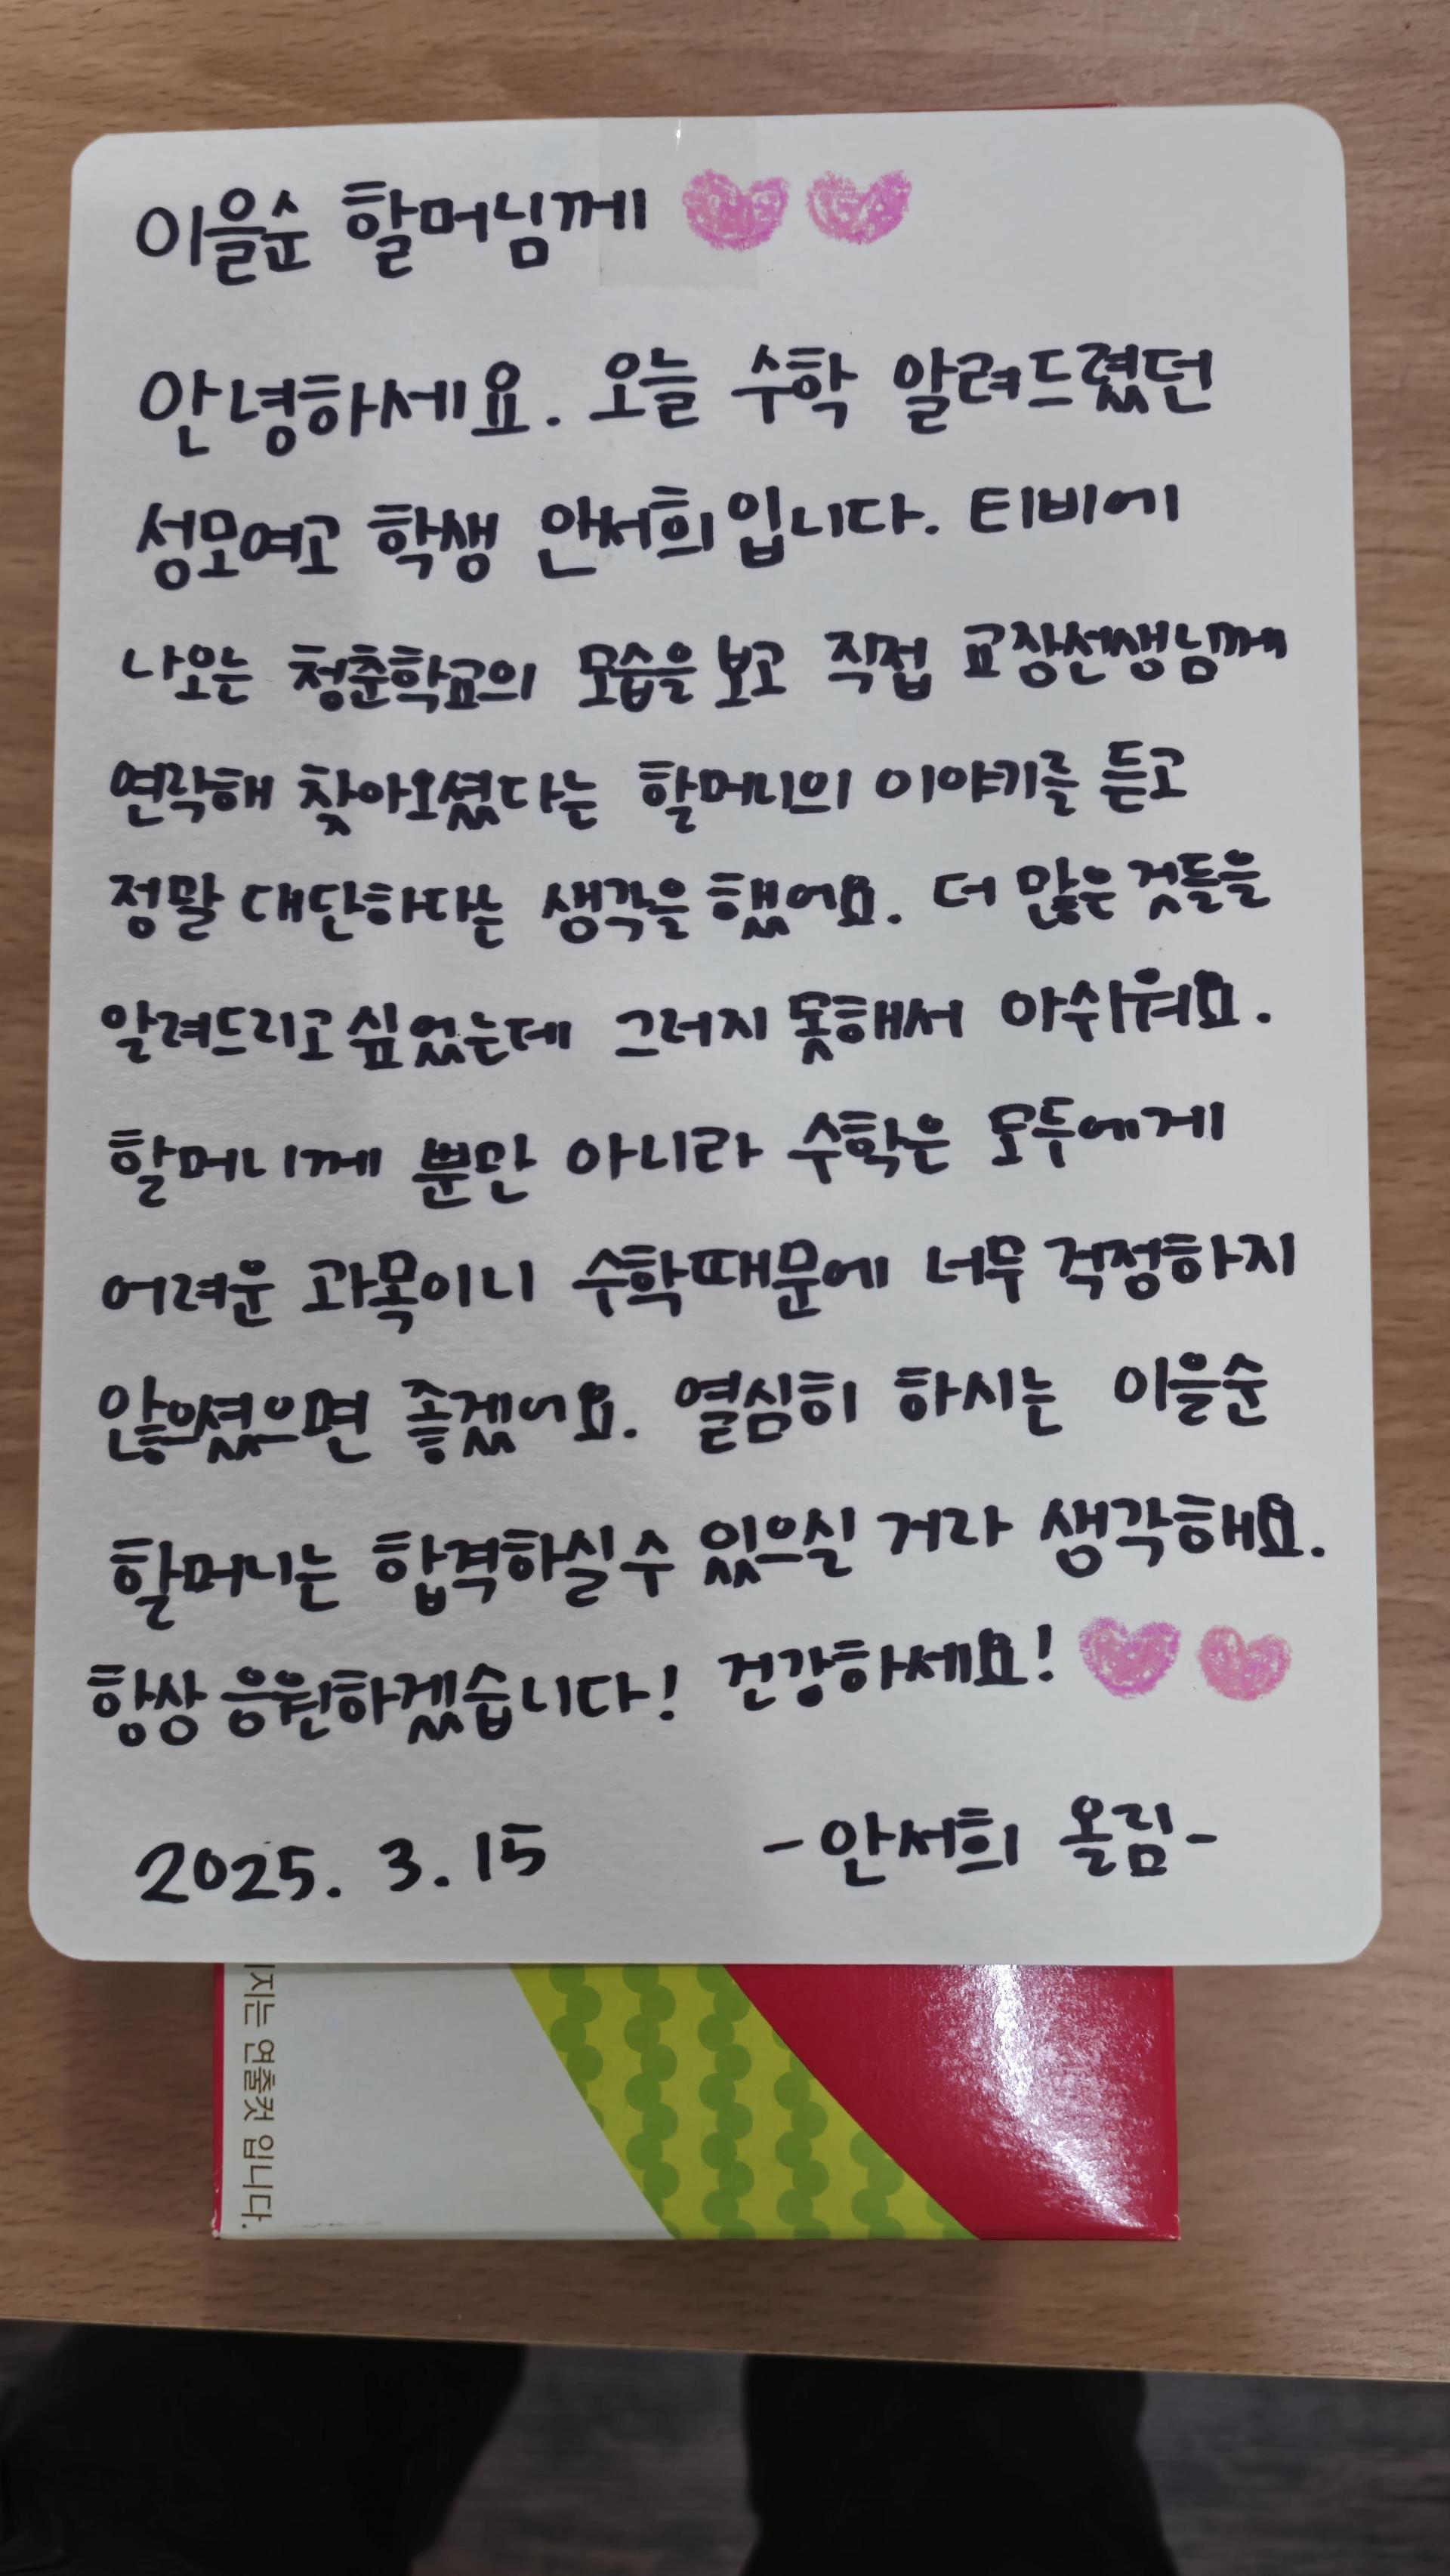 이을순 할머님께
안녕하세요. 오늘 수학 알려드렸던
성모여고 학생 안서희입니다. 티비에
나오는 청춘학교의 모습을 보고 직접 교장선생님께
연락해 찾아오셨다는 할머니의 이야기를 듣고
정말 대단하다는 생각을 했어요. 더 많은 것들을
알려드리고 싶었는데 그러지 못해서 아쉬워요.
할머니께 뿐만 아니라 수학은 모두에게
어려운 과목이니 수학때문에 너무 걱정하지
않으셨으면 좋겠어요. 열심히 하시는 이을순
할머니는 합격하실 수 있으실 거라 생각해요.
항상 응원하겠습니다! 건강하세요!
2025. 3. 15 -안서희 올림-
지는 연출컷 입니다.